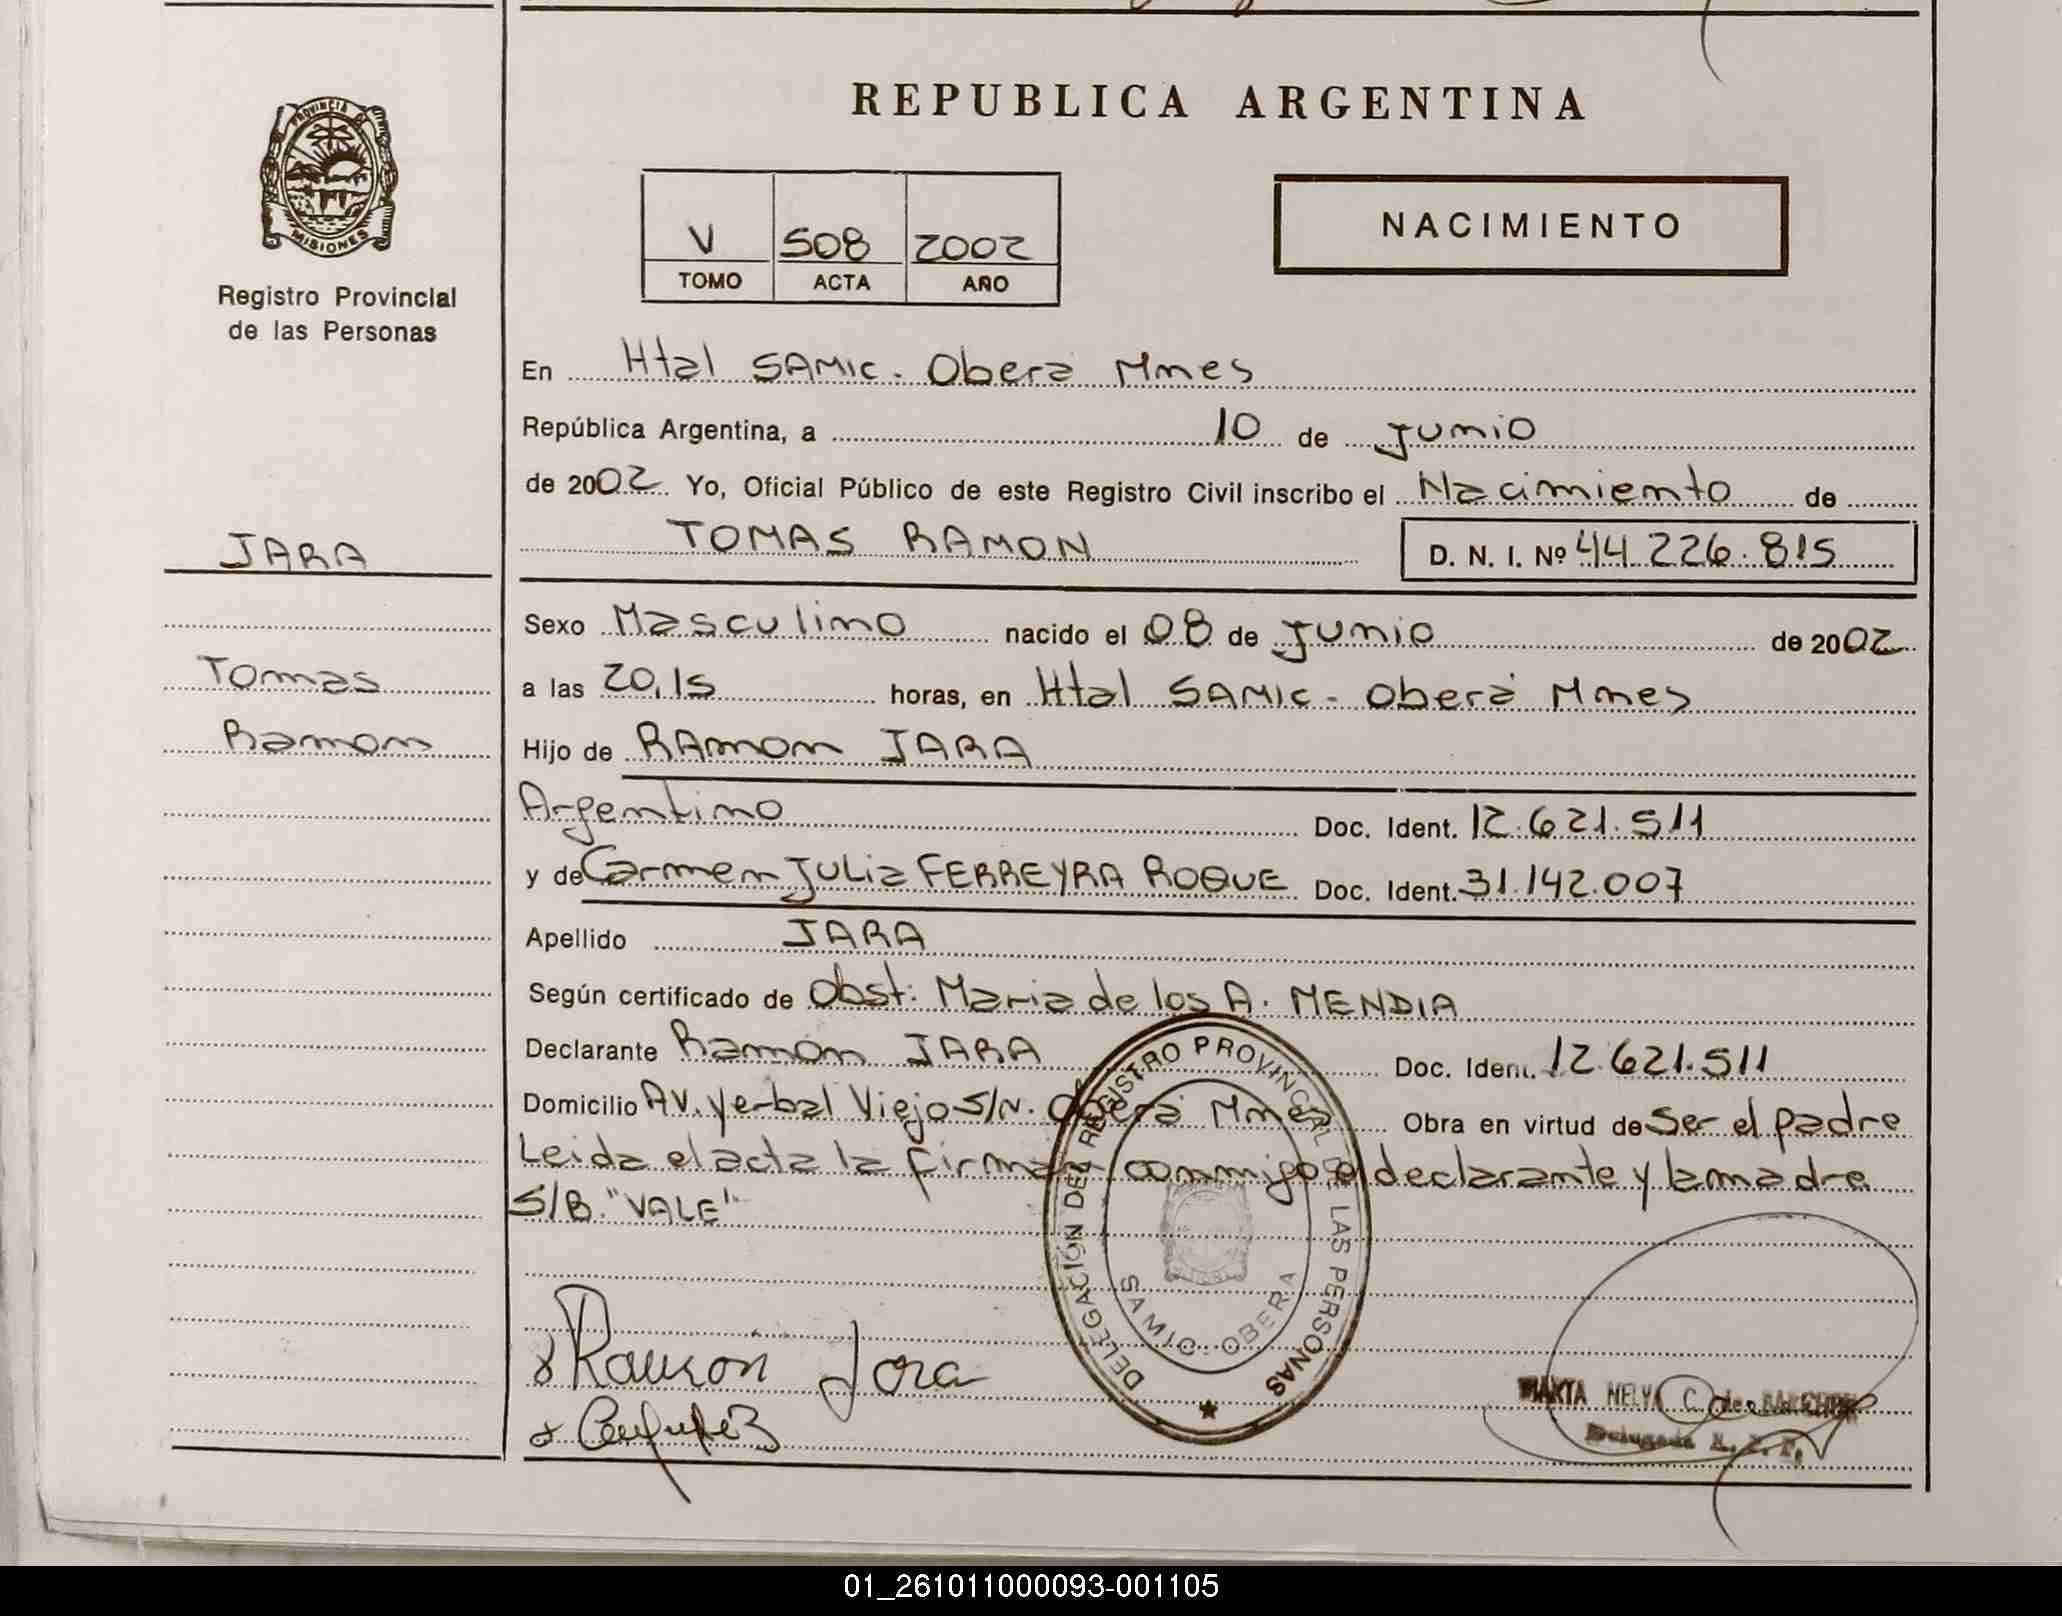 REPUBLICA ARGENTINA
PROVINCIA DE
MISIONES
Registro Provincial
de las Personas
V 508 2002
TOMO ACTA AÑO
NACIMIENTO
En Htal SAMIC. Oberá Mnes
República Argentina, a 10 de junio
de 2002 Yo, Oficial Público de este Registro Civil inscribo el Nacimiento de
JARA
TOMAS RAMON D. N. I. Nº 44.226.815
Sexo Masculino nacido el 08 de junio de 2002
Tomas
a las 20,15 horas, en Htal SAMIC - Oberá Mnes
Ramon
Hijo de RAmon JARA
Argentino Doc. Ident. 12.621.511
y de Carmen Julia FERREYRA ROQUE Doc. Ident. 31.142.007
Apellido JARA
Según certificado de Obst: Maria de los A. MENDIA
Declarante Ramón JARA Doc. Ident. 12.621.511
Domicilio AV. Yerbal Viejo S/N. Oberá Mnes Obra en virtud de Ser el padre
Leida el acta la firman conmigo el declarante y la madre
S/B. "VALE"
DELEGACIÓN DEL REGISTRO PROVINCIAL DE LAS PERSONAS
SAMIC - OBERA
Ramón Jara
MARTA NELVA C. de
Delegada R. P. P.
01_261011000093-001105